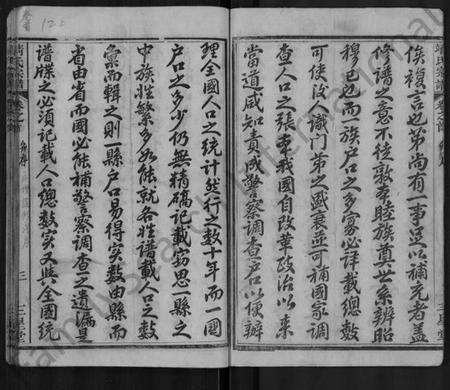 俟複言也第尚有一事足以補充者蓋
修譜之意不徒敦本睦族奠世系辨昭
穆已也而族户口之多寡必詳載總數
可使後人識门第之盛衰並可補國家調
查人口之張本我國自改革政治以來
當道咸知責成警察調查户口以便辦
理全國人口之統計然行之數十年而一國
户口之多少仍無精确記載窃思一縣之
中族姓繁多如能就各姓譜載人口之數
彙而輯之則一縣户口易得实數由縣而
省由省而國必能補警察調查之遺漏是
譜牒之必須记載人口總數实又與全國统
卷之首
三
三星堂
120